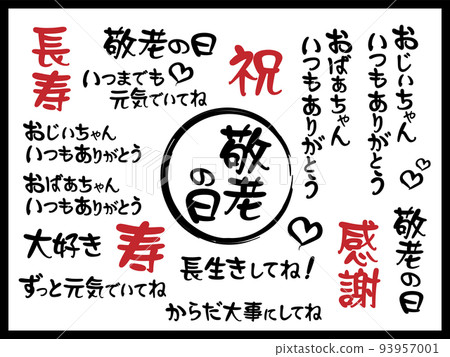 長寿
敬老の日
いつまでも
元気でいてね
祝
おばあちゃん
いつもありがとう
おじいちゃん
いつもありがとう
おじいちゃん
いつもありがとう
おばあちゃん
いつもありがとう
敬老
の日
大好き
寿
長生きしてね!
感謝
敬老の日
ずっと元気でいてね
からだ大事にしてね
PIXTA
93957001